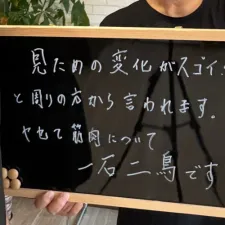 見ための変化がスゴイ!
と周りの方から言われます。
ヤセて筋肉について
一石二鳥です